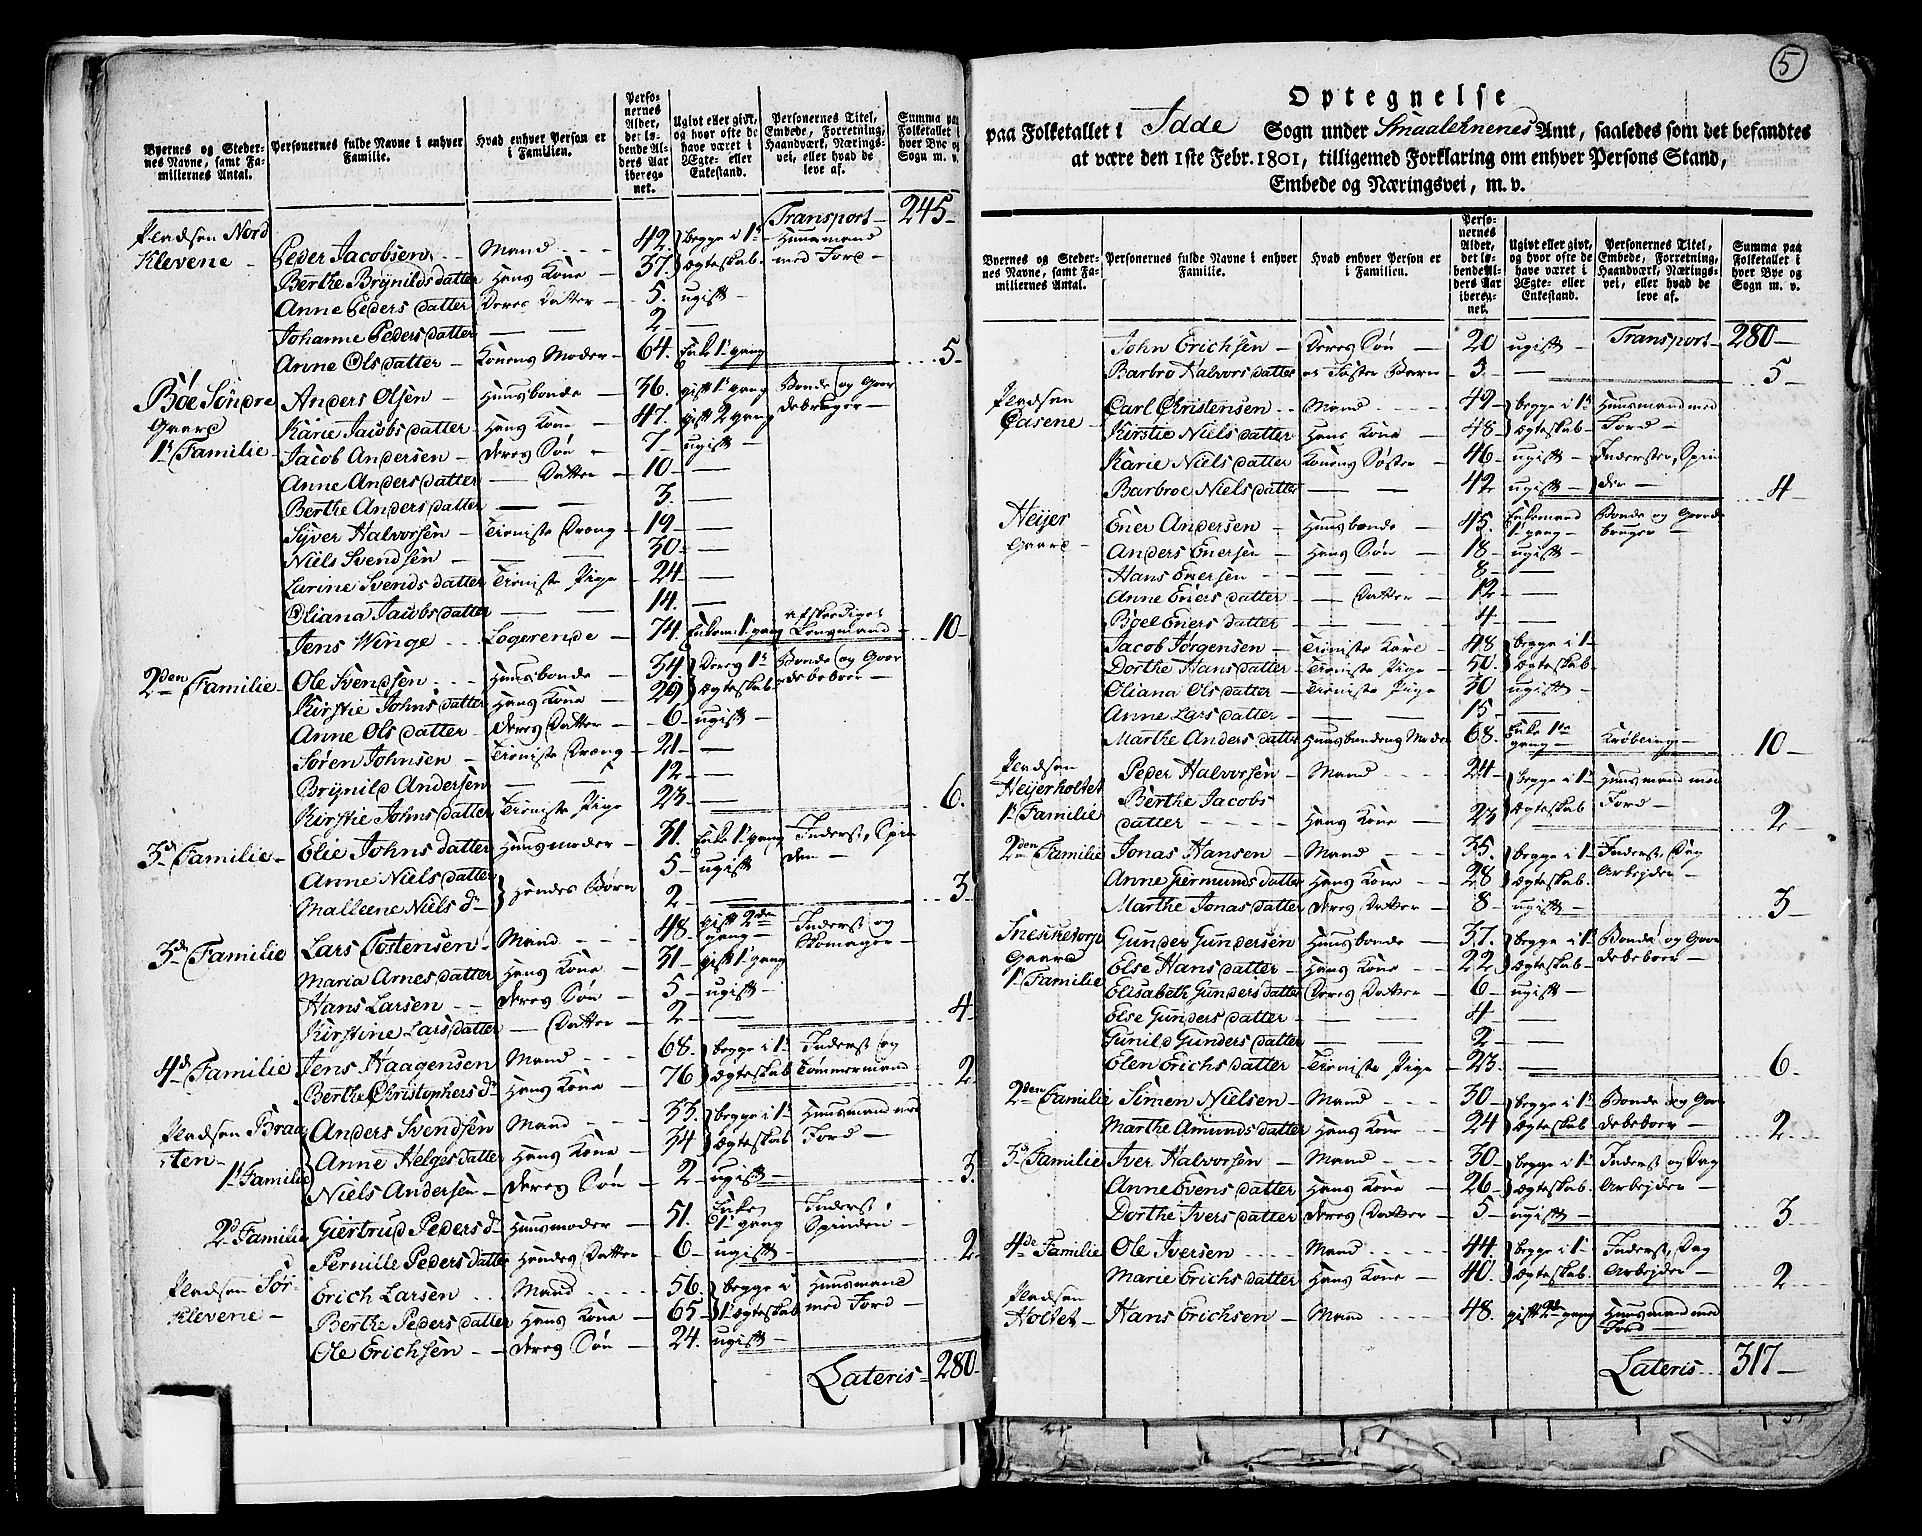 Byernes og Stedernes Navne, samt Familiernes Antal.
Personernes fulde Navne i enhver Familie.
Hvad enhver Person er i Familien.
Personernes Alder, det løbende Alders Aar iberegnet.
Ugivt eller givt, og hvor ofte de have været i Ægte- eller Enkestand.
Personernes Titel, Embede, Forretning, Haandværk, Næringsvei, eller hvad de leve af.
Summa paa Folketallet i hver Bye og Sogn m. v.
Transport - 245 -
Pladsen Nord Klevene - Peder Jacobsen - Mand - 42. begge i 1te Huusmand
Berthe Brynilds datter Hans Kone - 37. ægteskab - med Jord -
Anne Peders datter - Deres Datter - 5. ugift -
Johanne Peders datter — — 2 - —
Anne Ols datter - Konens Moder - 64. Enke 1te gang 5 -
Bøe Søndre Gaard Anders Olsen - Huusbonde - 36. gift 1te gang Bonde og Gaardebruger -
Karie Jacobs datter - Hans Kone - 47. gift 2 gang
1te Familie - Jacob Andersen - Deres Søn - 7 - ugift -
Anne Anders datter — Datter - 10 - —
Berthe Anders datter — — 3. —
Syver Halvorsen - Tieniste Dreng - 19 - —
Niels Svendsen — — 30 - —
Larine Svends datter Tieniste Pige - 24 - —
Oliana Jacobs datter — — 14. —
Jens Winge - Logerende - 74. Enkem: 1te gang afskediget Lensmand - 10 -
2den Familie - Ole Svendsen - Huusbonde - 34. Deres 1te Bonde og Gaardebeboer -
Kirstie Johns datter Hans Kone - 29 ægteskab -
Anne Ols datter - Deres Datter - 6 - ugift -
Søren Johnsen - Tieniste Dreng - 21 - —
Brynild Andersen — — 12 - —
Kirstie Johns datter Tieniste Pige - 23 - — 6.
3de Familie - Elie Johns datter Huusmoder - 31. Enke 1te gang Inderst, Spinden -
Anne Niels datter Hendes Børn 5 - ugift
Malleene Niels dr - 2 - — 3 -
3de Familie Lars Tostensen - Mand - 48. gift 2de gang - Inderst og Skomager -
Maria Arnes datter Hans Kone - 31 - gift 1te gang
Hans Larsen - Deres Søn - 5 - ugift -
Kirstine Lars datter — Datter - 2 - — 4 -
4de Familie Jens Haagensen Mand - 68. begge i 1te Inderst og
Berthe Christophers dr Hans Kone - 76 ægteskab Tømmermand 2
Pladsen Braaten - Anders Svendsen Mand - 33. begge i 1te Huusmand med
1te Familie Anne Helges datter Hans Kone - 34 ægteskab Jord -
Niels Andersen - Deres Søn - 2 - ugift - 3.
2de Familie Giertrud Peders dr Huusmoder - 51. Enke 1te gang Inderst Spinden -
Pernille Peders datter Hendes Datter - 6 - ugift - 2
Pladsen Sør Klevene - Erich Larsen - Mand - 56. begge i Huusmand
Berthe Peders datter Hans Kone - 65 - 1te ægteskab med Jord -
Ole Erichsen - Deres Søn - 24. ugift -
Lateris - 280.
5
Optegnelse
paa Folketallet i Idde Sogn under Smaalehnenes Amt, saaledes som det befandtes
at være den 1ste Febr. 1801, tilligemed Forklaring om enhver Persons Stand,
Embede og Næringsvei, m. v.
Byernes og Stedernes Navne, samt Familiernes Antal.
Personernes fulde Navne i enhver Familie.
Hvad enhver Person er i Familien.
Personernes Alder, det løbende Alders Aar iberegnet.
Ugivt eller givt, og hvor ofte de have været i Ægte- eller Enkestand.
Personernes Titel, Embede, Forretning, Haandværk, Næringsvei, eller hvad de leve af.
Summa paa Folketallet i hver Bye og Sogn m. v.
John Erichsen - Deres Søn - 20 ugift - Transport - 280 -
Barbro Halvors datter et Foster Barn - 3. — 5 -
Pladsen Casene - Carl Christensen - Mand - 49 - begge i 1te Huusmand med
Kirstie Niels datter - Hans Kone - 48 - ægteskab - Jord -
Karie Niels datter Konens Søster - 46 - ugift - Inderster, Spinden -
Barbroe Niels datter — — 42 ugift - 4 -
Heijer Gaard - Ener Andersen - Huusbonde - 45. Enkemand 1te gang - Bonde og Gaardebruger -
Anders Enersen - Hans Søn - 18 - ugift -
Hans Enersen — — 8 - —
Anne Eners datter — Datter - 12 - —
Boel Eners datter — — 4 - —
Jacob Jørgensen - Tieniste Karl - 48 begge i 1te
Dorthe Hans datter - Tieniste Pige - 50 - ægteskab -
Oliana Ols datter - Tieniste Pige 30 ugift -
Anne Lars datter — — 15 - —
Marthe Anders datter Huusbondens Moder 68. Enke 1te gang - 10 -
Pladsen Heijerholtet Peder Halvorsen - Mand - 24 - begge i 1te Huusmand med
1te Familie Berthe Jacobs datter - Hans Kone - 23 ægteskab - Jord - 2 -
2den Familie Jonas Hansen - Mand - 35. begge i 1te Inderst, Dag
Anne Giermunds datter Hans Kone - 28 ægteskab. Arbejder -
Marthe Jonas datter Deres Datter - 8 - ugift - 3 -
Gaard Gunder Gundersen Huusbonde - 37. begge i 1te Bonde og Gaardebeboer -
1te Familie Else Hans datter - Hans Kone - 22 ægteskab -
Elisabeth Gunders datter Deres Datter - 6 - ugift -
Else Gunders datter — — 4 - —
Gunild Gunders datter — — 2 - —
Elen Erichs datter Tieniste Pige - 23 - — 6 -
2den Familie Simen Nielsen - Mand - 30 - begge i 1te Bonde og Gaardebeboer -
Marthe Amunds datter Hans Kone - 24 ægteskab 2 -
3de Familie Iver Halvorsen - Mand - 30 - begge i 1te Inderst og Dag
Anne Evens datter Hans Kone - 26 - ægteskab. Arbejder -
Dorthe Ivers datter Deres Datter - 5 - ugift - 3 -
4de Familie Ole Iversen - Mand - 44. begge i 1te Inderst, Dag
Marie Erichs datter Hans Kone - 40. ægteskab. Arbejder - 2 -
Pladsen Holtet - Hans Erichsen - Mand - 48. gift 2de gang Huusmand med Jord
Lateris - 317 -